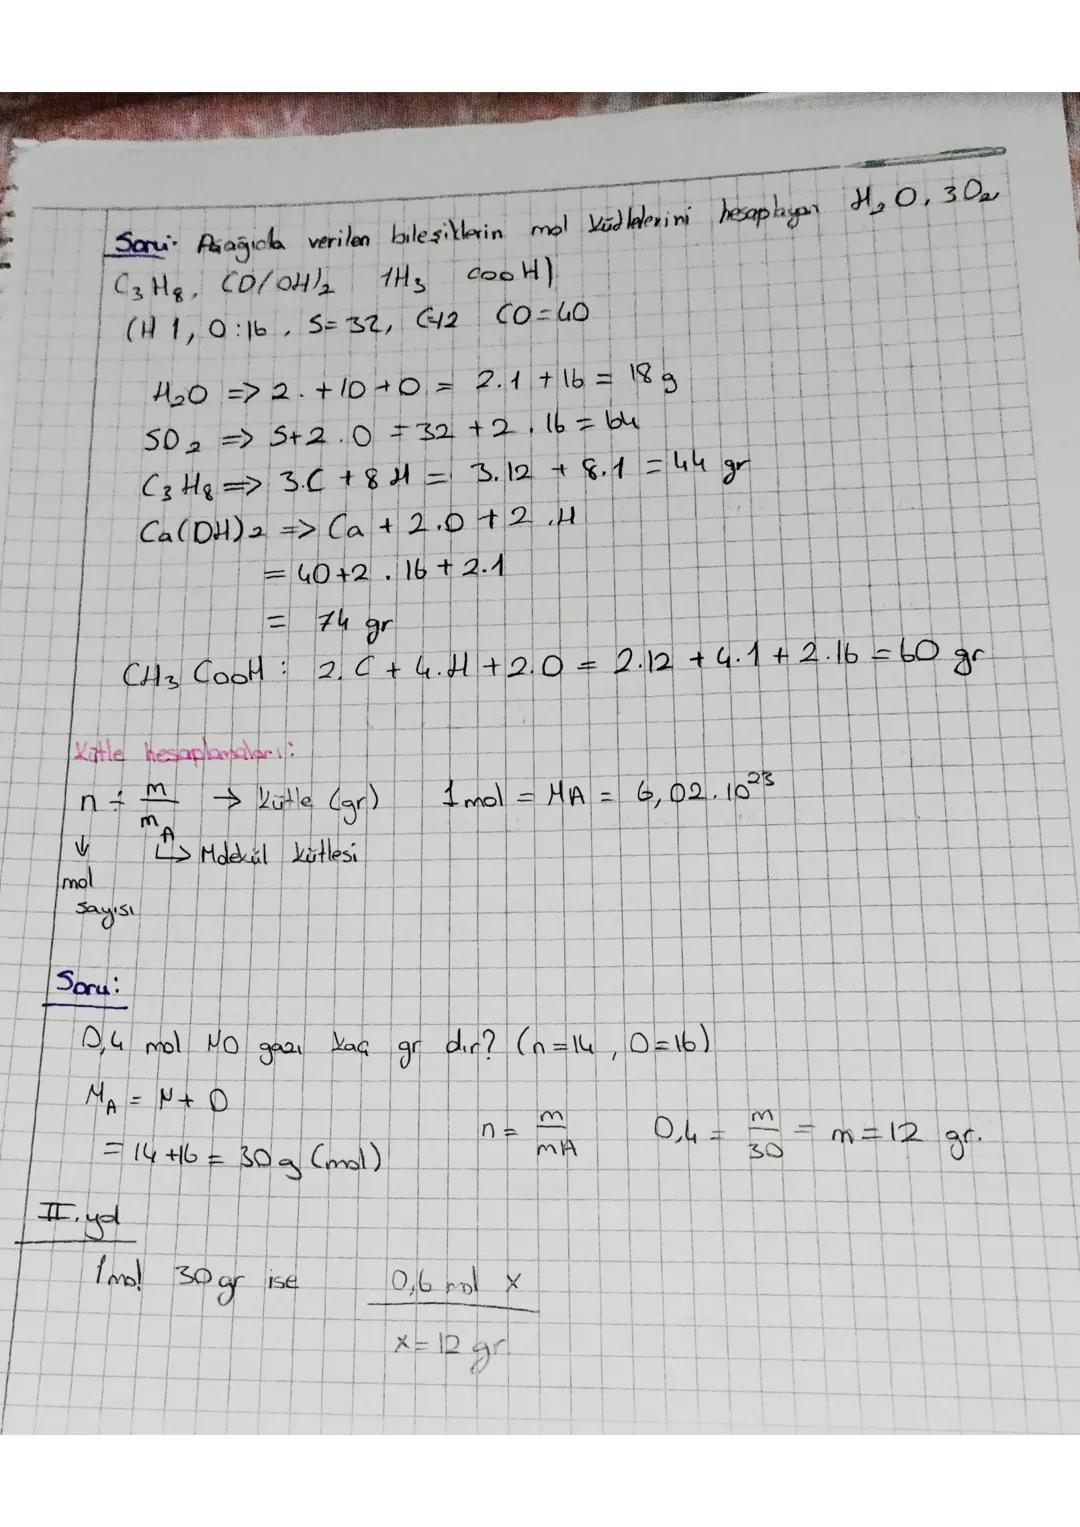 Soru: Aşağıda verilen bileşiklerin mol kütlelerini hesaplayan H₂O, 3O₂
C₃H₈, CO(OH)₂ 1H₃ COOH)
(H 1, O:16, S=32, C=12 CO=40
H₂O => 2.+10+0 = 2.1 + 16 = 18 g
SO₂ => S+2.O = 32 + 2.16 = 64
C₃H₈ => 3.C + 8H = 3.12 + 8.1 = 44 gr
Ca(OH)₂ => Ca + 2.O + 2.H
= 40+2.16+2.1
= 74 gr
CH₃COOH: 2.C + 4.H + 2.O = 2.12 + 4.1 + 2.16 = 60 gr
Kütle hesaplamaları:
n = m/mA → Kütle (gr) 1 mol = NA = 6,02.10²³
↓ ↳ Molekül kütlesi
mol
sayısı
Soru:
0,4 mol NO gazı kaç gr dır? (n=14, O=16)
MA = N+O
= 14+16 = 30 g (mol) n = m/mA 0,4 = m/30 = m=12 gr.
II. yol
1 mol 30 gr ise 0,6 mol x
x = 12 gr.